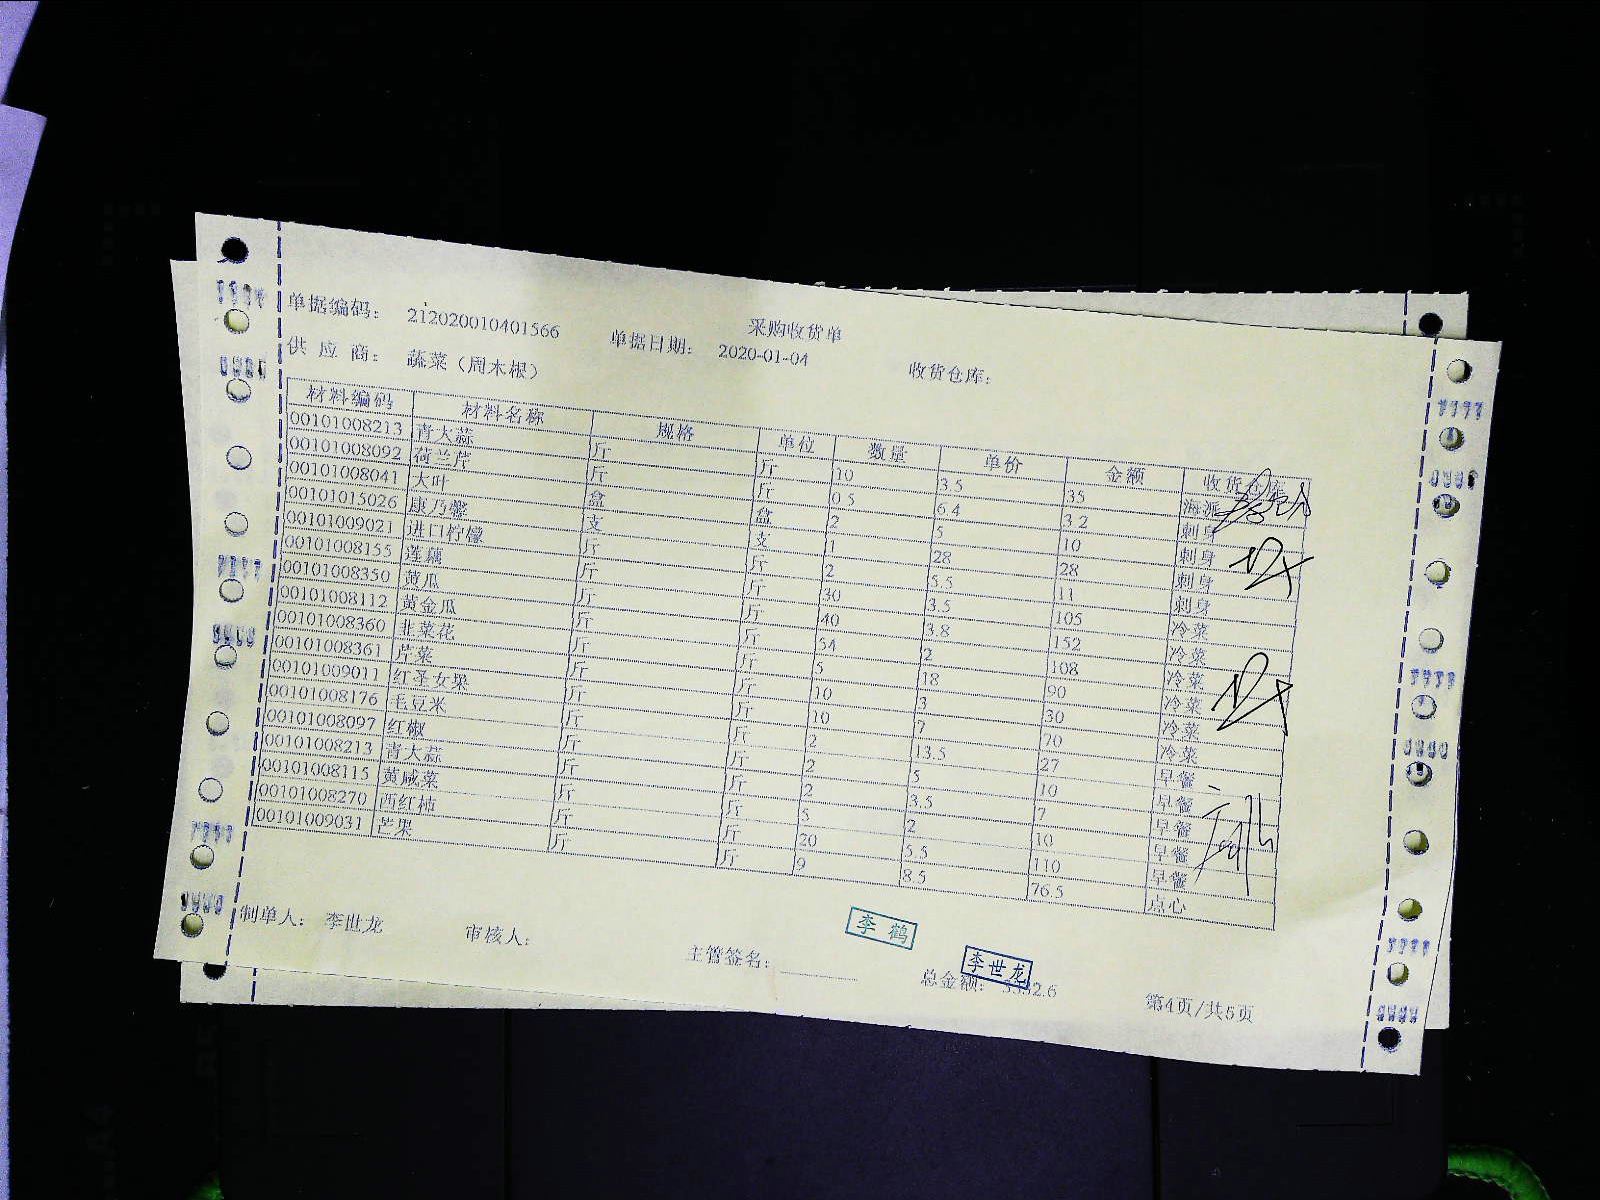 采购收货单
单据编码: 212020010401566 单据日期: 2020-01-04 收货仓库:
供 应 商: 蔬菜（周木根）
材料编码 材料名称 规格 单位 数量 单价 金额 收货仓库
00101008213 青大蒜 斤 斤 10 3.5 35 海派
00101008092 荷兰芹 斤 斤 0.5 6.4 3.2 刺身
00101008041 大叶 盒 盒 2 5 10 刺身
00101015026 康乃馨 支 支 1 28 28 刺身
00101009021 进口柠檬 斤 斤 2 5.5 11 刺身
00101008155 莲藕 斤 斤 30 3.5 105 冷菜
00101008350 黄瓜 斤 斤 40 3.8 152 冷菜
00101008112 黄金瓜 斤 斤 54 2 108 冷菜
00101008360 韭菜花 斤 斤 5 18 90 冷菜
00101008361 芹菜 斤 斤 10 3 30 冷菜
00101009011 红圣女果 斤 斤 10 7 70 冷菜
00101008176 毛豆米 斤 斤 2 13.5 27 早餐
00101008097 红椒 斤 斤 2 5 10 早餐
00101008213 青大蒜 斤 斤 2 3.5 7 早餐
00101008115 黄咸菜 斤 斤 5 2 10 早餐
00101008270 西红柿 斤 斤 20 5.5 110 早餐
00101009031 芒果 斤 斤 9 8.5 76.5 点心
李鹤
李世龙
制单人: 李世龙 审核人: 主管签名: 总金额: 第4页/共5页